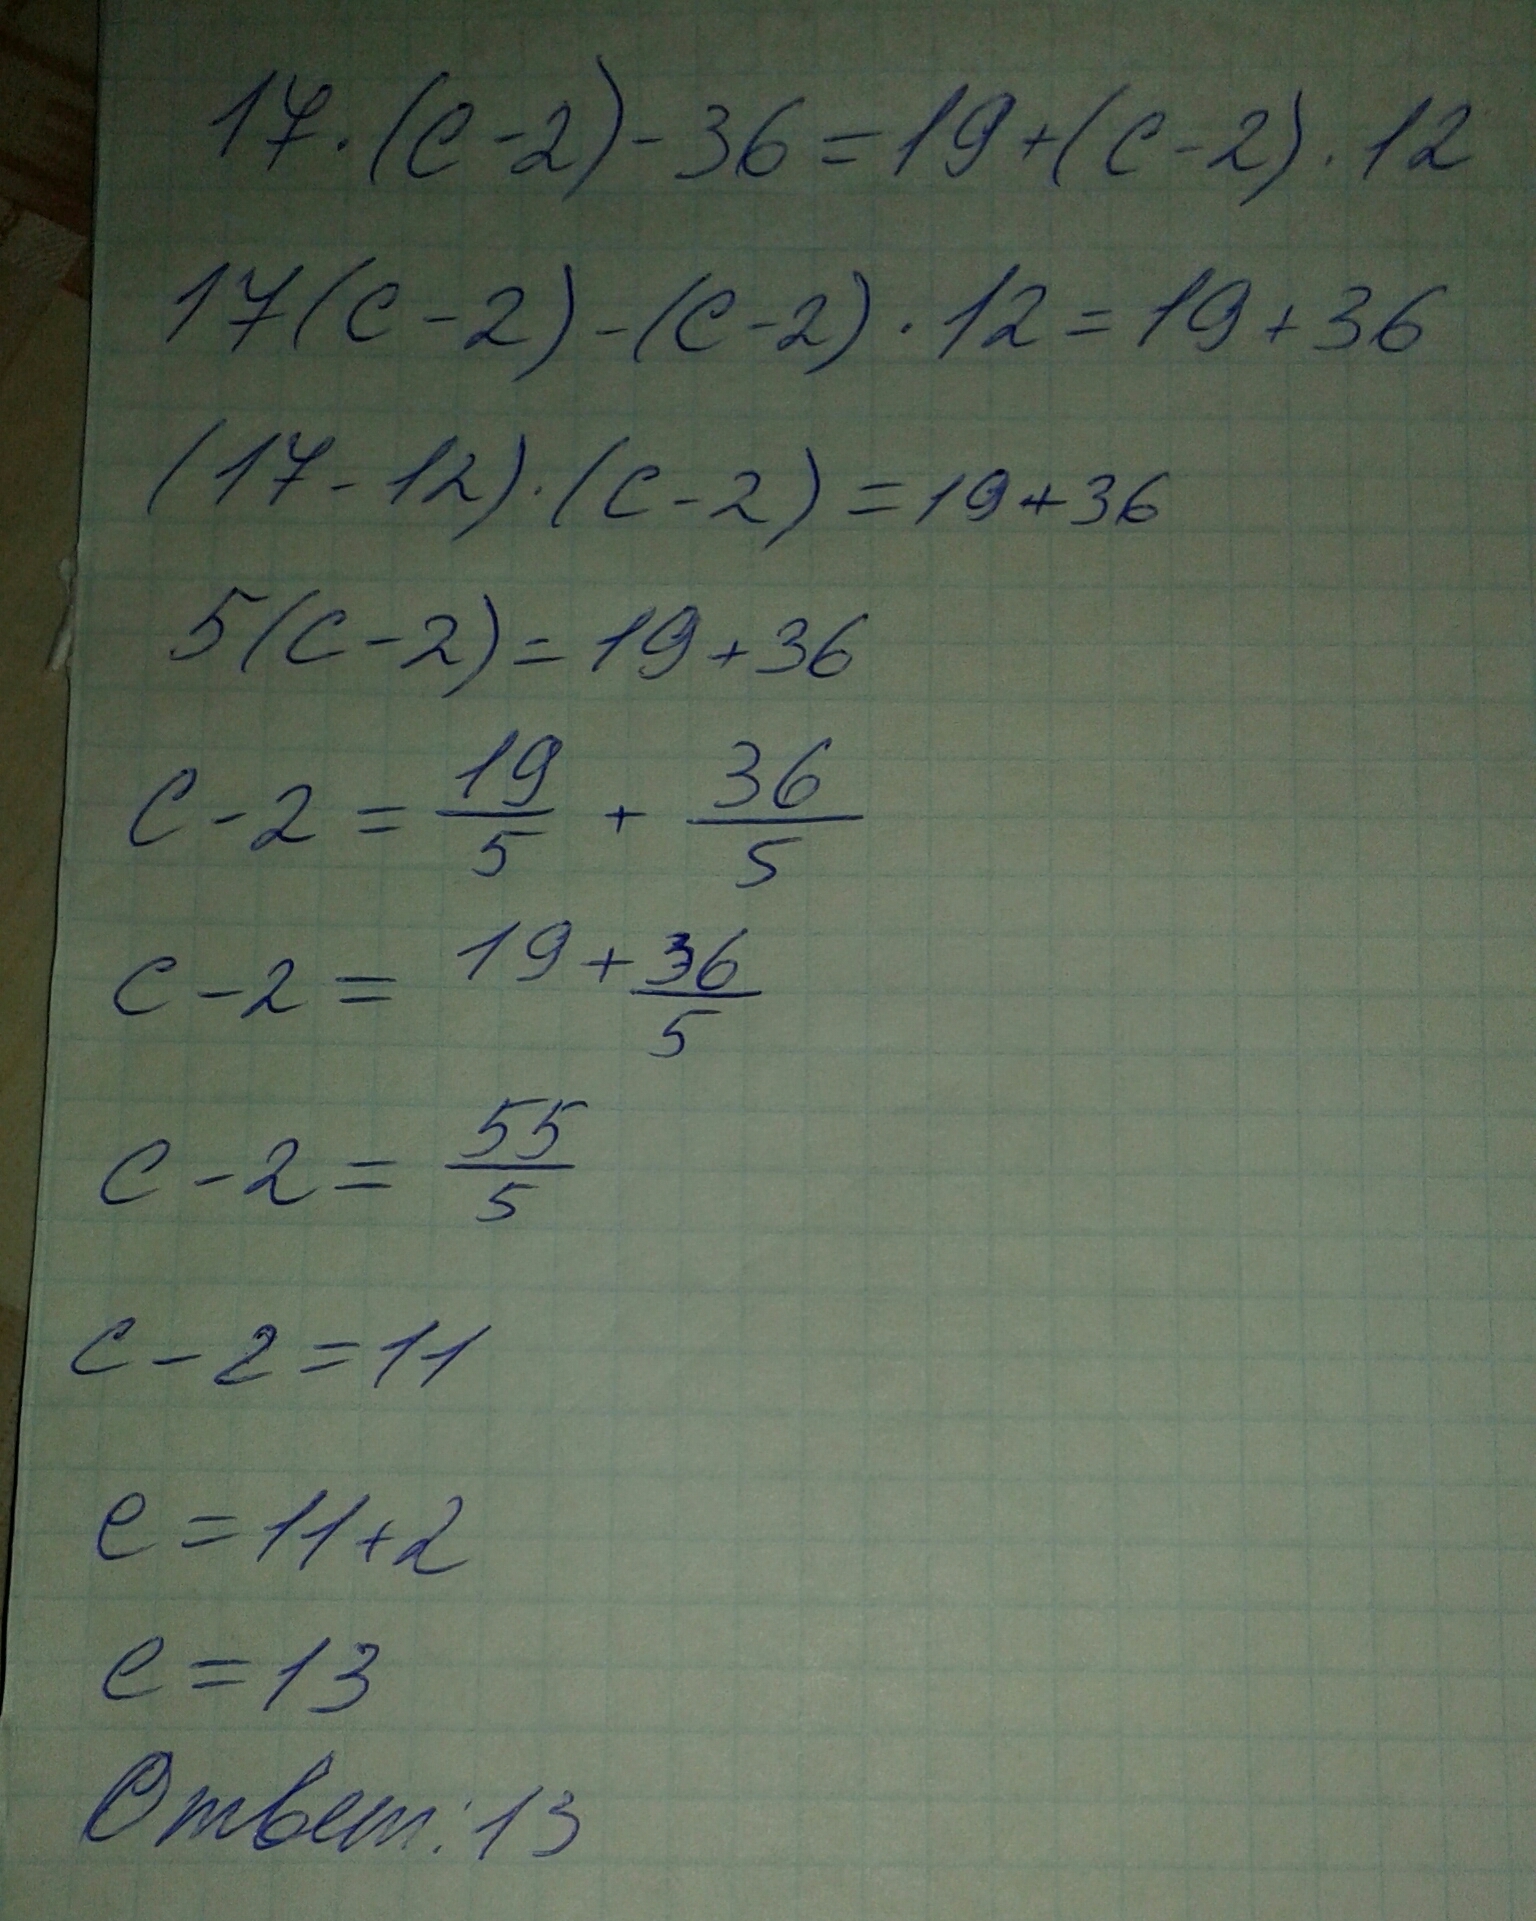 17·(c-2)-36=19+(c-2)·12
17(c-2)-(c-2)·12=19+36
(17-12)·(c-2)=19+36
5(c-2)=19+36
c-2=19/5+36/5
c-2=19+36/5
c-2=55/5
c-2=11
c=11+2
c=13
Ответ:13